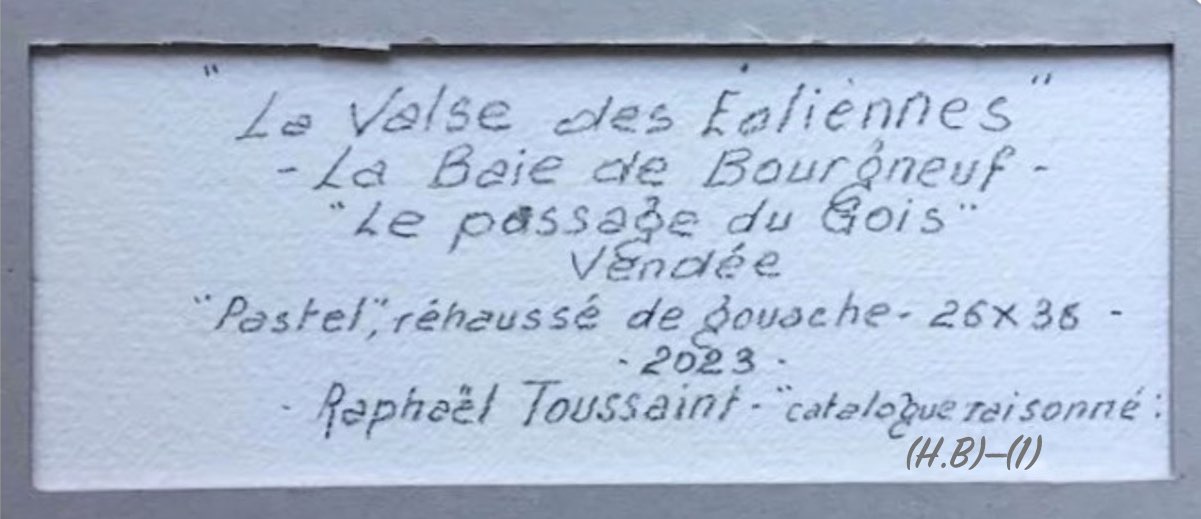 "La Valse des Éoliènnes"
- La Baie de Bourgneuf -
"Le passage du Gois"
Vendée
"Pastel", réhaussé de gouache - 26x36 -
- 2023 -
- Raphaël Toussaint - "catalogue raisonné :
(H.B)–(1)